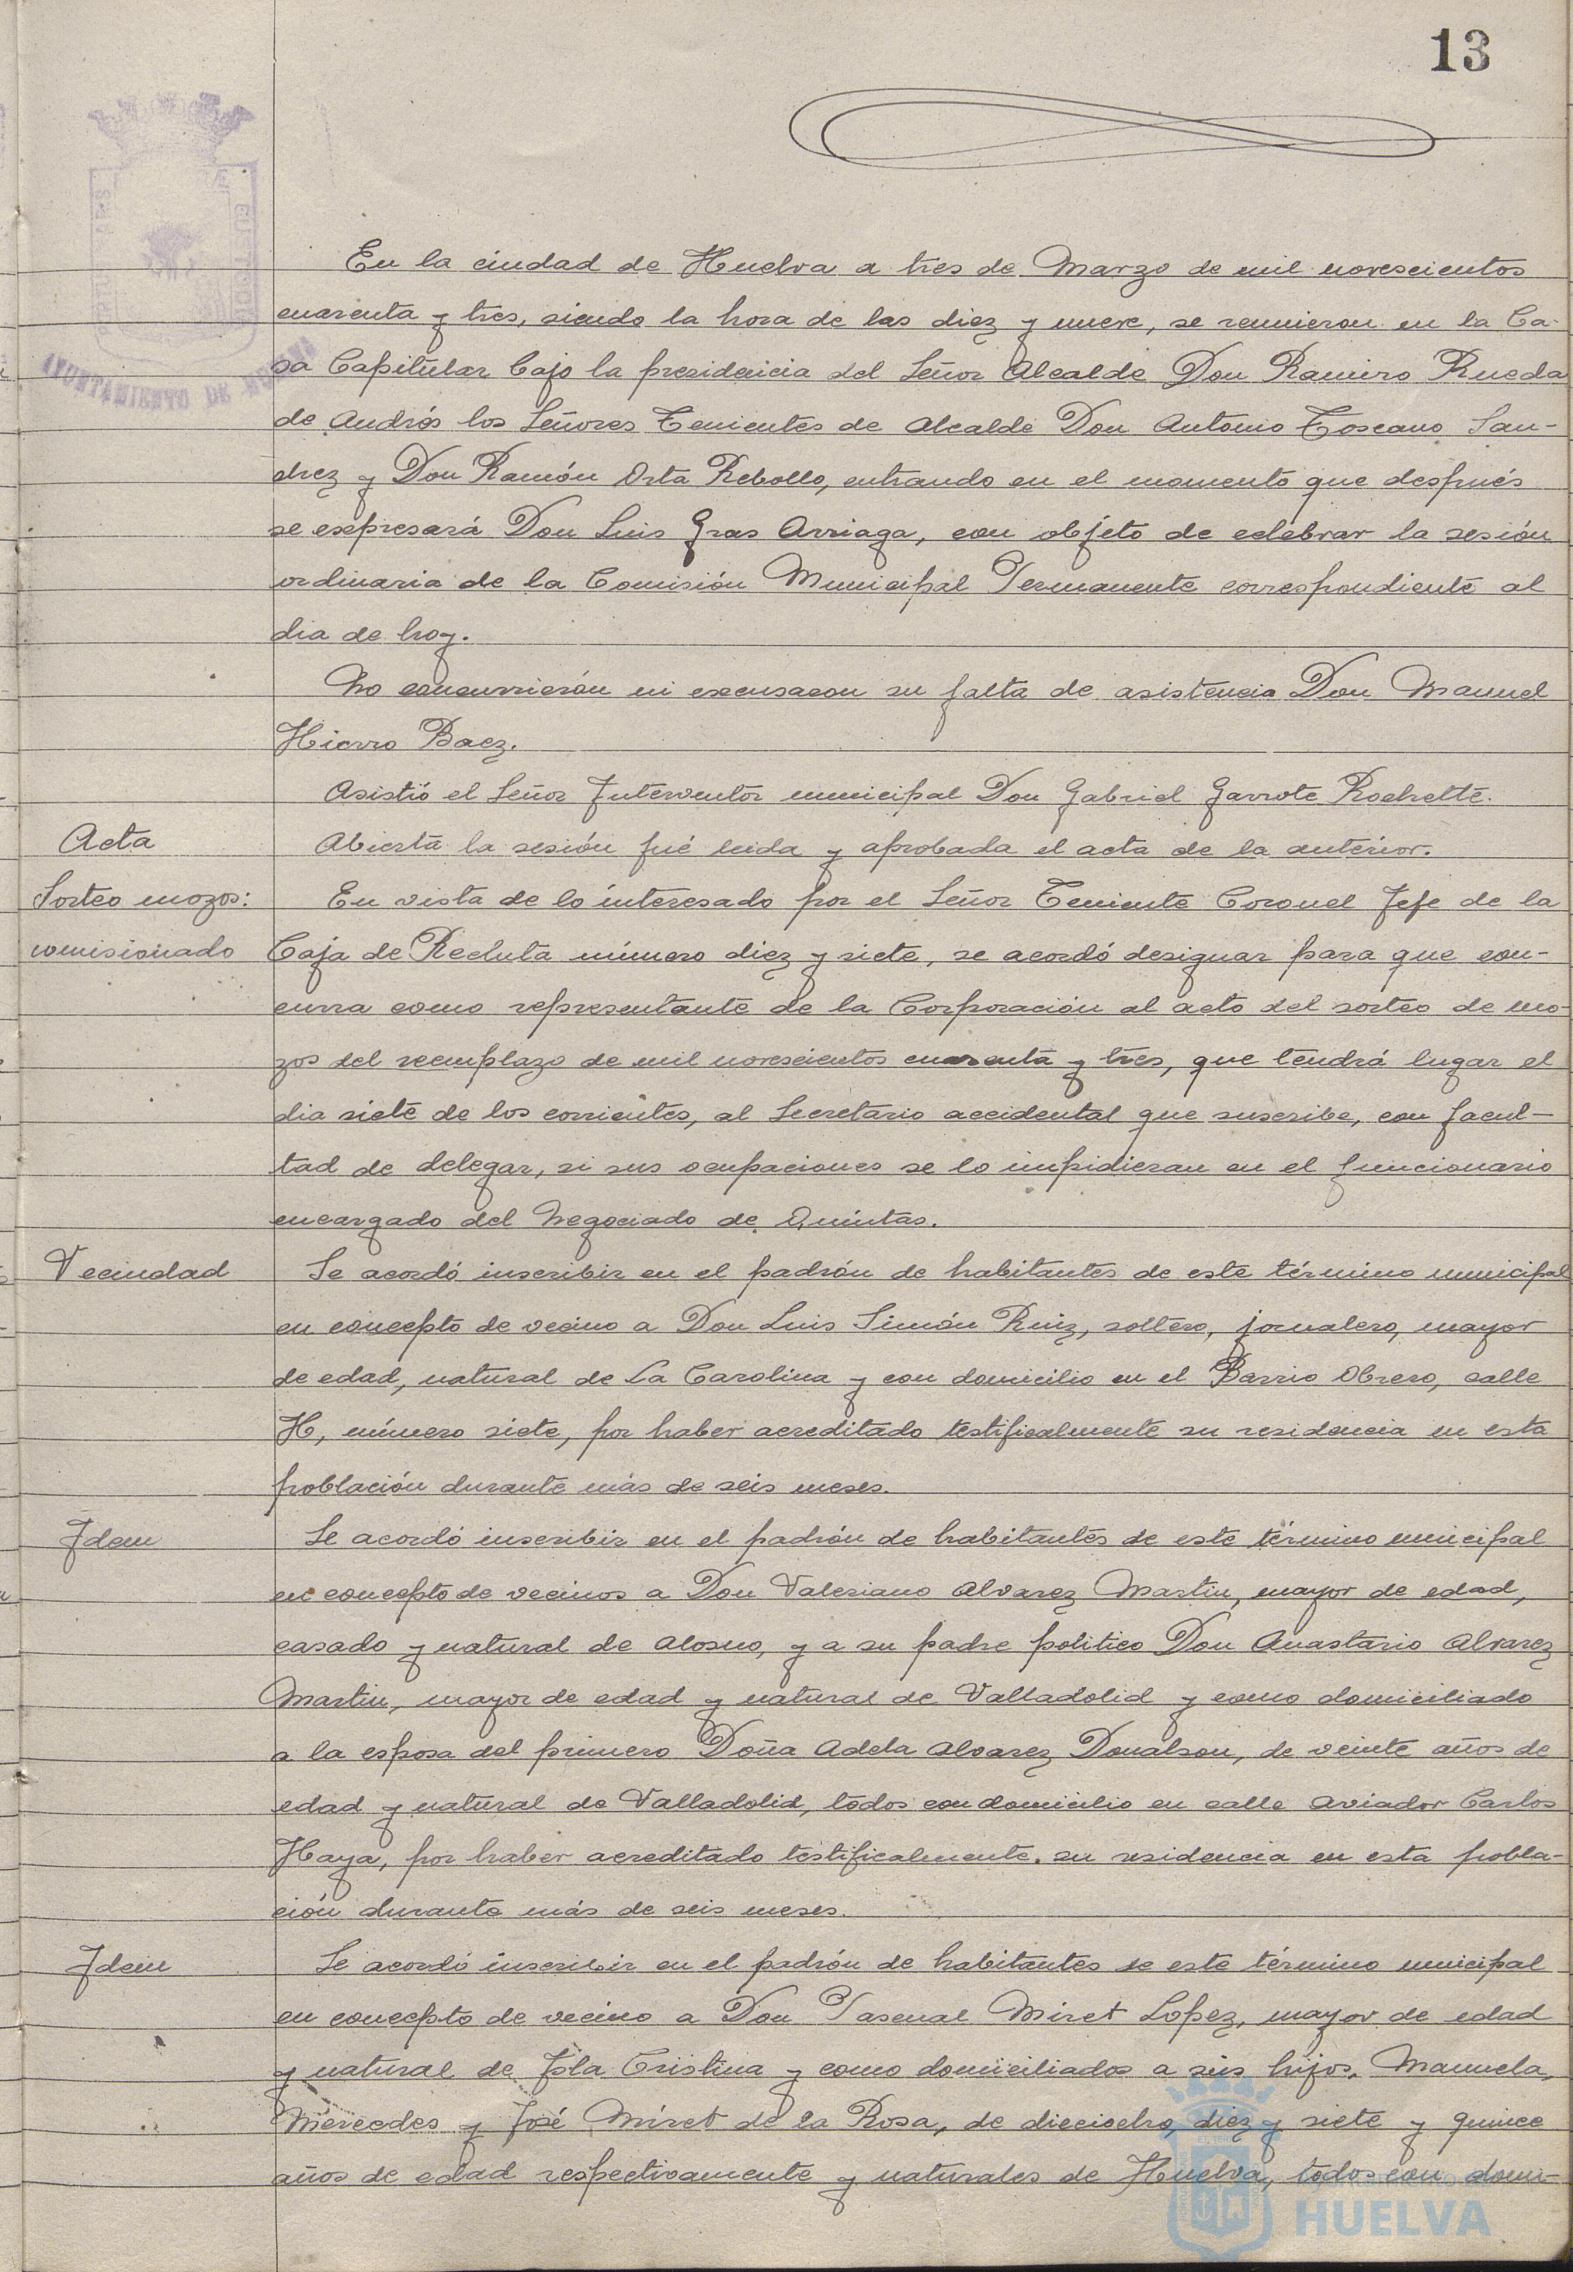 13
En la ciudad de Huelva a tres de Marzo de mil novescientos
cuarenta y tres, siendo la hora de las diez y nueve, se reunieron en la Ca-
sa Capitular bajo la presidencia del Señor Alcalde Don Ramiro Rueda
de Andrés los Señores Tenientes de Alcalde Don Antonio Toscano San-
chez y Don Ramón Orta Rebollo, entrando en el momento que después
se expresará Don Luis Gras Arriaga, con objeto de celebrar la sesión
ordinaria de la Comisión Municipal Permanente correspondiente al
dia de hoy.
No concurrierón ni excusaron su falta de asistencia Don Manuel
Hierro Baez.
Asistió el Señor Interventor municipal Don Gabriel Garrote Rochelte.
Acta
Abierta la sesión fué leida y aprobada el acta de la anterior.
Sorteo mozos:
En vista de lo interesado por el Señor Teniente Coronel Jefe de la
comisionado
Caja de Recluta número diez y siete, se acordó designar para que con-
curra como representante de la Corporación al acto del sorteo de mo-
zos del reemplazo de mil novescientos cuarenta y tres, que tendrá lugar el
dia siete de los corrientes, al Secretario accidental que suscribe, con facul-
tad de delegar, si sus ocupaciones se lo impidieran en el funcionario
encargado del Negociado de Quintas.
Vecindad
Se acordó inscribir en el padrón de habitantes de este término municipal
en concepto de vecino a Don Luis Simón Ruiz, soltero, jornalero, mayor
de edad, natural de La Carolina y con domicilio en el Barrio Obrero, calle
H, número siete, por haber acreditado testificalmente su residencia en esta
población durante más de seis meses.
Idem
Se acordó inscribir en el padrón de habitantes de este término municipal
en concepto de vecinos a Don Valeriano Alvarez Martin, mayor de edad,
casado y natural de Alosno, y a su padre politico Don Anastasio Alvarez
Martin, mayor de edad y natural de Valladolid y como domiciliado
a la esposa del primero Doña Adela Alvarez Donalson, de veinte años de
edad y natural de Valladolid, todos con domicilio en calle Aviador Carlos
Haya, por haber acreditado testificalmente su residencia en esta pobla-
ción durante más de seis meses.
Idem
Se acordó inscribir en el padrón de habitantes de este término municipal
en concepto de vecino a Don Pascual Miret Lopez, mayor de edad
y natural de Isla Cristina y como domiciliados a sus hijos, Manuela,
Mercedes y José Miret de la Rosa, de dieciocho, diez y siete y quince
años de edad respectivamente y naturales de Huelva, todos con domi-
AYUNTAMIENTO DE
Ayuntamiento de
HUELVA